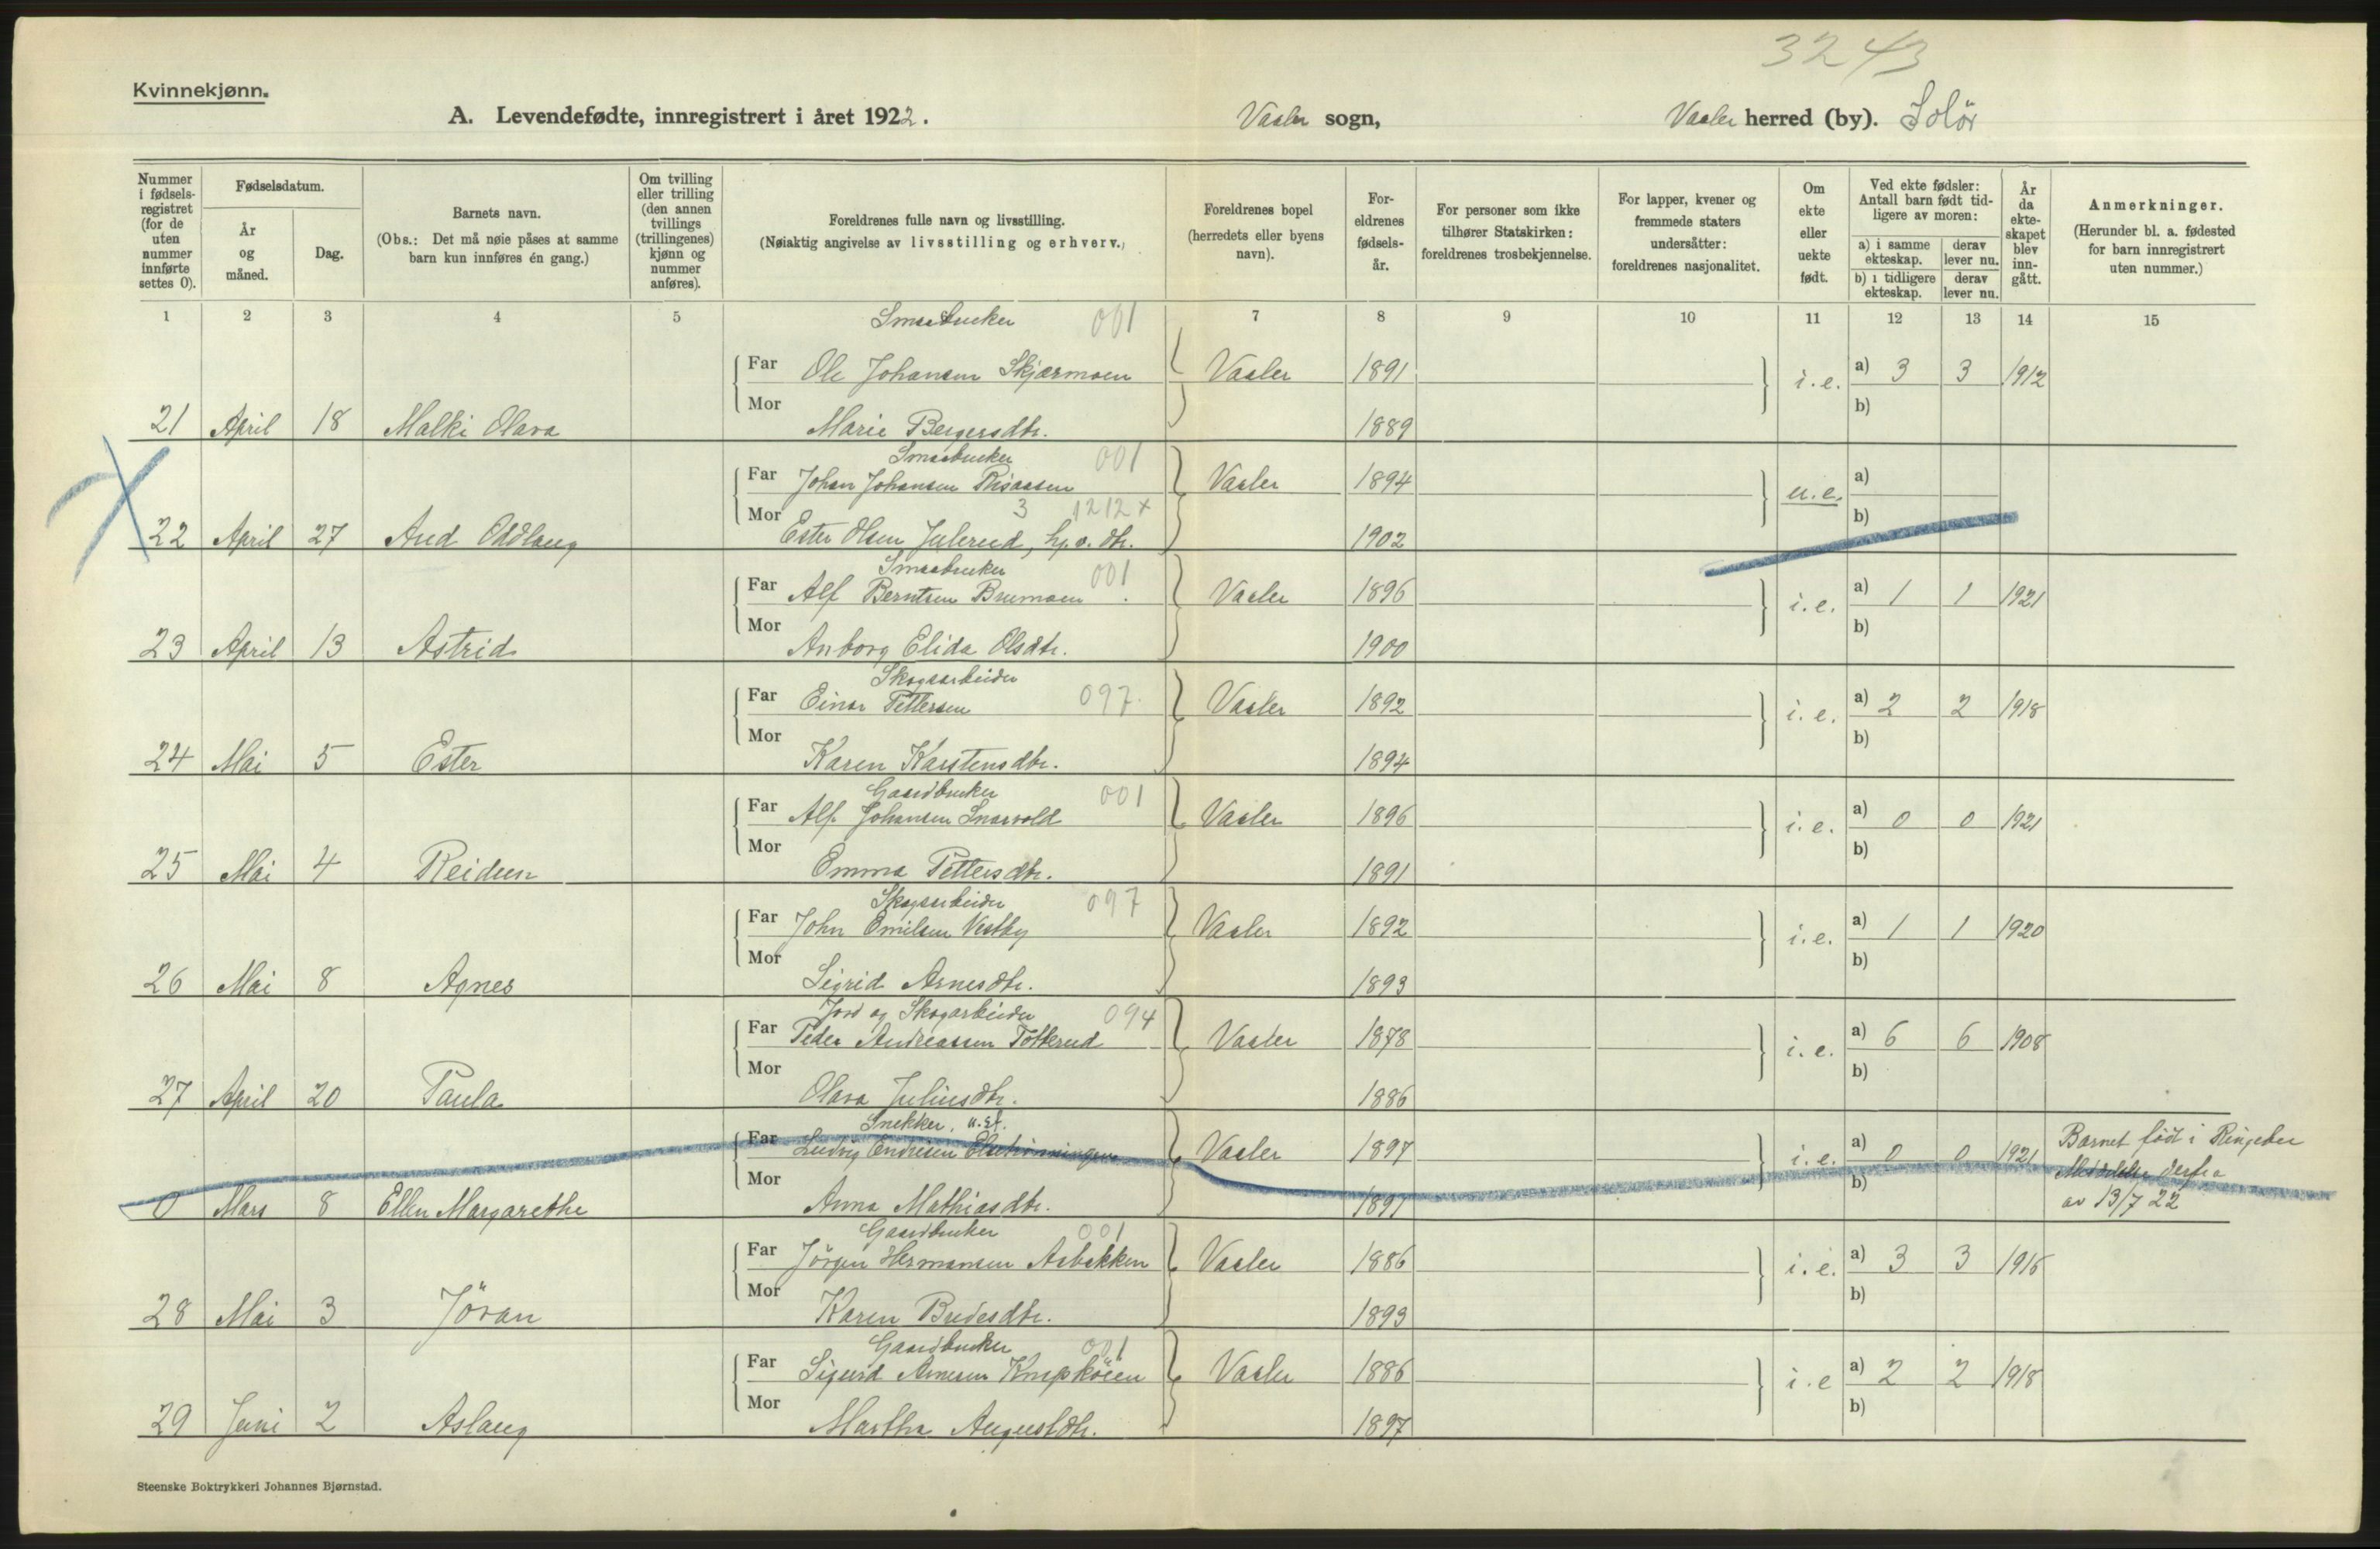 3243
Kvinnekjønn.
A. Levendefødte, innregistrert i året 1922. Vaaler sogn, Vaaler herred (by). Solör
Nummer i fødsels-registret (for de uten nummer innførte settes 0).
Fødselsdatum.
År og måned.
Dag.
Barnets navn.
(Obs.: Det må nøie påses at samme barn kun innføres én gang.)
Om tvilling eller trilling (den annen tvillings (trillingenes) kjønn og nummer anføres).
Foreldrenes fulle navn og livsstilling.
(Nøiaktig angivelse av livsstilling og erhverv.)
Foreldrenes bopel (herredets eller byens navn).
For-eldrenes fødsels-år.
For personer som ikke tilhører Statskirken: foreldrenes trosbekjennelse.
For lapper, kvener og fremmede staters undersåtter: foreldrenes nasjonalitet.
Om ekte eller uekte født.
Ved ekte fødsler: Antall barn født tid-ligere av moren:
a) i samme ekteskap. derav lever nu.
b) i tidligere ekteskap. derav lever nu.
År da ekte-skapet blev inn-gått.
Anmerkninger.
(Herunder bl. a. fødested for barn innregistrert uten nummer.)
1 2 3 4 5 7 8 9 10 11 12 13 14 15
Smaabruker 001
Far Ole Johansen Skjærmoen Vaaler 1891 i.e. a) 3 3 1912
Mor b)
21 April 18 Malki Olava Marie Bergersdtr. 1889
Smaabruker 001
Far Johan Johansen Risaasen Vaaler 1894 u.e. a)
Mor 3 1212 x b)
22 April 27 Aud Oddlaug Ester Olsen Julerud, hp.o. dtr. 1902
Smaabruker 001
Far Alf Berntsen Brumoen Vaaler 1896 i.e. a) 1 1 1921
Mor b)
23 April 13 Astrid Anborg Elida Olsdtr. 1900
Skogsarbeider
Far Einar Pettersen 097 Vaaler 1892 i.e. a) 2 2 1918
Mor b)
24 Mai 5 Ester Karen Karstensdtr. 1894
Gaardbruker 001
Far Alf Johansen Snarvold Vaaler 1896 i.e. a) 0 0 1921
Mor b)
25 Mai 4 Reidun Emma Pettersdtr. 1891
Skogsarbeider 097
Far John Emilsen Vestby Vaaler 1892 i.e. a) 1 1 1920
Mor b)
26 Mai 8 Agnes Sigrid Arnesdtr. 1893
Jord og Skogarbeider 094
Far Peder Andreassen Tolkerud Vaaler 1878 i.e. a) 6 6 1908
Mor b)
27 April 20 Paula Olava Juliusdtr. 1886
Snekker,
Far Ludvig Andresen Vaaler 1897 i.e. a) 0 0 1921 Barnet født i Ringebu
Mor b) Meddelelse derfra
0 Mars 8 Ellen Margarethe Anna Mathiasdtr. 1897 av 13/7 22
Gaardbruker 001
Far Jörgen Hermansen Asbakken Vaaler 1886 i.e. a) 3 3 1916
Mor b)
28 Mai 3 Jöran Karen Bredesdtr. 1893
Gaardbruker 001
Far Sigurd Arnesen Knapköien Vaaler 1886 i.e a) 2 2 1918
Mor b)
29 Juni 2 Aslaug Martha Augustdtr. 1897
Steenske Boktrykkeri Johannes Bjørnstad.